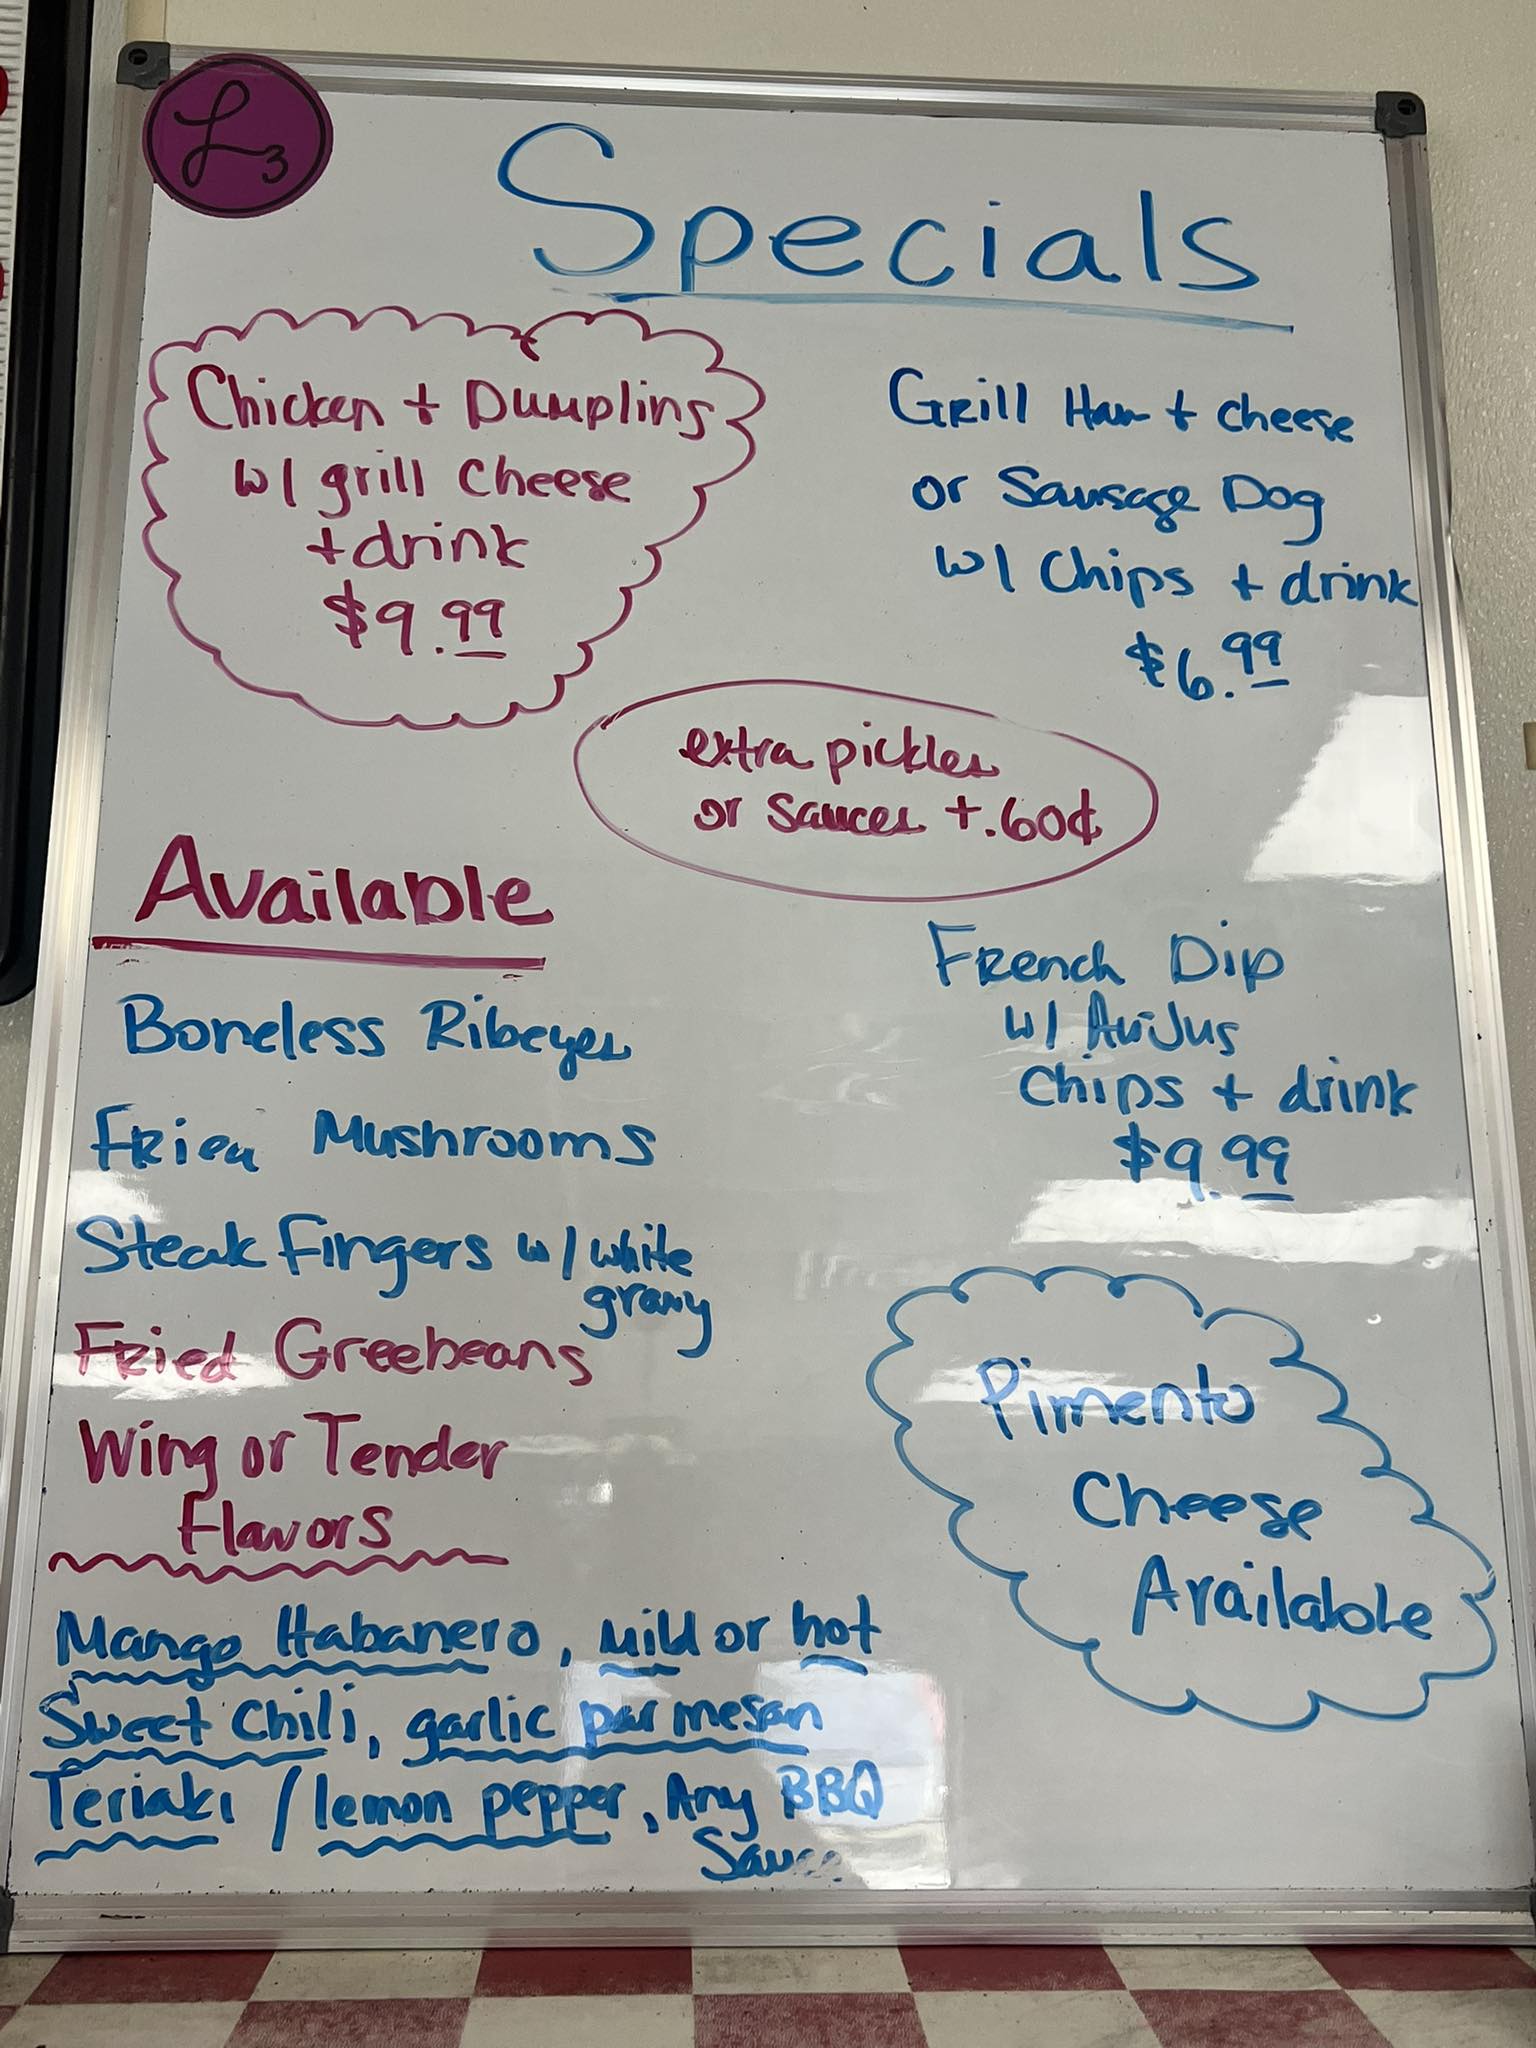 L3
Specials
Chicken + Dumplins
w/ grill cheese
+ drink
$9.99
Grill Ham + cheese
or Sausage Dog
w/ Chips + drink
$6.99
extra pickles
or sauces +.60¢
Available
Boneless Ribeyes
Fried Mushrooms
Steak Fingers w/ white
gravy
Fried Greebeans
Wing or Tender
Flavors
Mango Habanero, mild or hot
Sweet Chili, garlic parmesan
Teriaki / lemon pepper, Any BBQ
Sauce
French Dip
w/ AuJus
Chips + drink
$9.99
Pimento
Cheese
Available